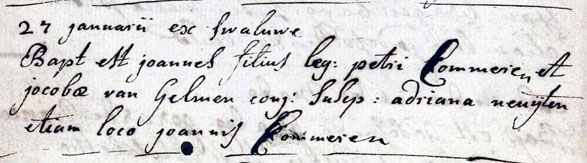 27 januarii ex swaluwe
Bapt est joannes filius leg: petri Commeren et
jacobæ van Gelmen conj: Susep: adriana neuyten
etiam loco joannis Commeren